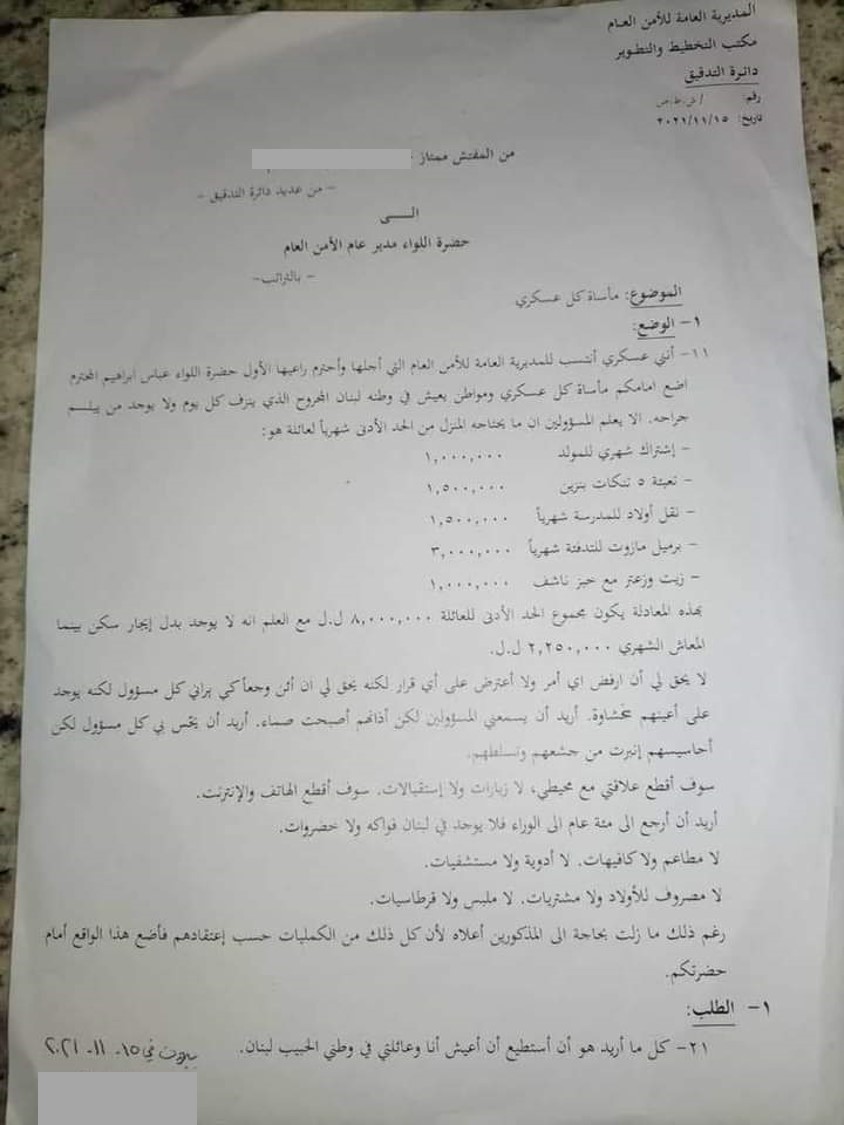 المديرية العامة للأمن العام
مكتب التخطيط والتطوير
دائرة التدقيق
رقم: / ش.ط.ص
تاريخ: ٢٠٢١/١١/١٥
من المفتش ممتاز
- من عديد دائرة التدقيق -
الــــى
حضرة اللواء مدير عام الأمن العام
- بالتراتب-
الموضوع: مأساة كل عسكري
١- الوضع:
١١- أنني عسكري أنتسب للمديرية العامة للأمن العام التي أجلها وأحترم راعيها الأول حضرة اللواء عباس ابراهيم المحترم
اضع امامكم مأساة كل عسكري ومواطن يعيش في وطنه لبنان المجروح الذي ينزف كل يوم ولا يوجد من يبلسم
جراحه. الا يعلم المسؤولين ان ما يحتاجه المنزل من الحد الأدنى شهرياً لعائلة هو:
- إشتراك شهري للمولد ١,٠٠٠,٠٠٠
- تعبئة ٥ تنكات بنزين ١,٥٠٠,٠٠٠
- نقل أولاد للمدرسة شهرياً ١,٥٠٠,٠٠٠
- برميل مازوت للتدفئة شهرياً ٣,٠٠٠,٠٠٠
- زيت وزعتر مع خبز ناشف ١,٠٠٠,٠٠٠
بهذه المعادلة يكون مجموع الحد الأدنى للعائلة ٨,٠٠٠,٠٠٠ ل.ل مع العلم انه لا يوجد بدل إيجار سكن بينما
المعاش الشهري ٢,٢٥٠,٠٠٠ ل.ل.
لا يحق لي أن ارفض اي أمر ولا أعترض على أي قرار لكنه يحق لي ان أئن وجعاً كي يراني كل مسؤول لكنه يوجد
على أعينهم غشاوة. أريد أن يسمعني المسؤولين لكن أذانهم أصبحت صماء. أريد أن يحّس بي كل مسؤول لكن
أحاسيسهم إنبرت من جشعهم وتسلطهم.
سوف أقطع علاقتي مع محيطي، لا زيارات ولا إستقبالات. سوف أقطع الهاتف والإنترنت.
أريد أن أرجع الى مئة عام الى الوراء فلا يوجد في لبنان فواكه ولا خضروات.
لا مطاعم ولا كافيهات. لا أدوية ولا مستشفيات.
لا مصروف للأولاد ولا مشتريات. لا ملبس ولا قرطاسيات.
رغم ذلك ما زلت بحاجة الى المذكورين أعلاه لأن كل ذلك من الكمليات حسب إعتقادهم فأضع هذا الواقع أمام
حضرتكم.
١- الطلب:
٢١- كل ما أريد هو أن أستطيع أن أعيش أنا وعائلتي في وطني الحبيب لبنان.
بيروت في ١٥-١١-٢٠٢١